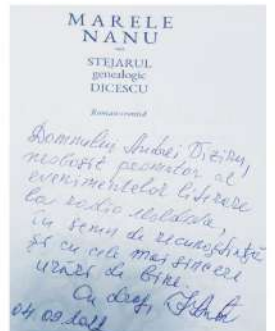 MARELE
NANU
sau
STEJARUL
genealogic
DICESCU
Roman-cronică
Domnului Andrei Viziru,
neobosit promotor al
evenimentelor literare
la radio Moldova,
cu semn de recunoștință
și cu cele mai sincere
urări de bine.
Cu drag,
04.09.2022